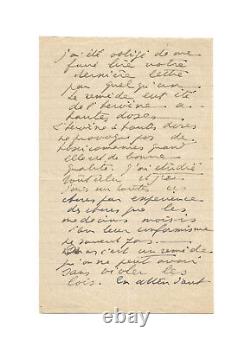 j'ai été obligé de me
faire lire votre
dernière lettre
par quelqu'un
Le remède eut été
de l'héroïne à
hautes doses
L'héroïne à hautes doses
ne provoque pas de
toxicomanies quand
elle est de bonne
qualité. J'ai étudié
tout cela et j'ai
sur toutes ces
choses par expérience
des choses que les
médecins moisis
d'un conformisme
ne savent pas.
c'est un remède
qu'on ne peut avoir
sans violer les
lois. En attendant
© ebay.com